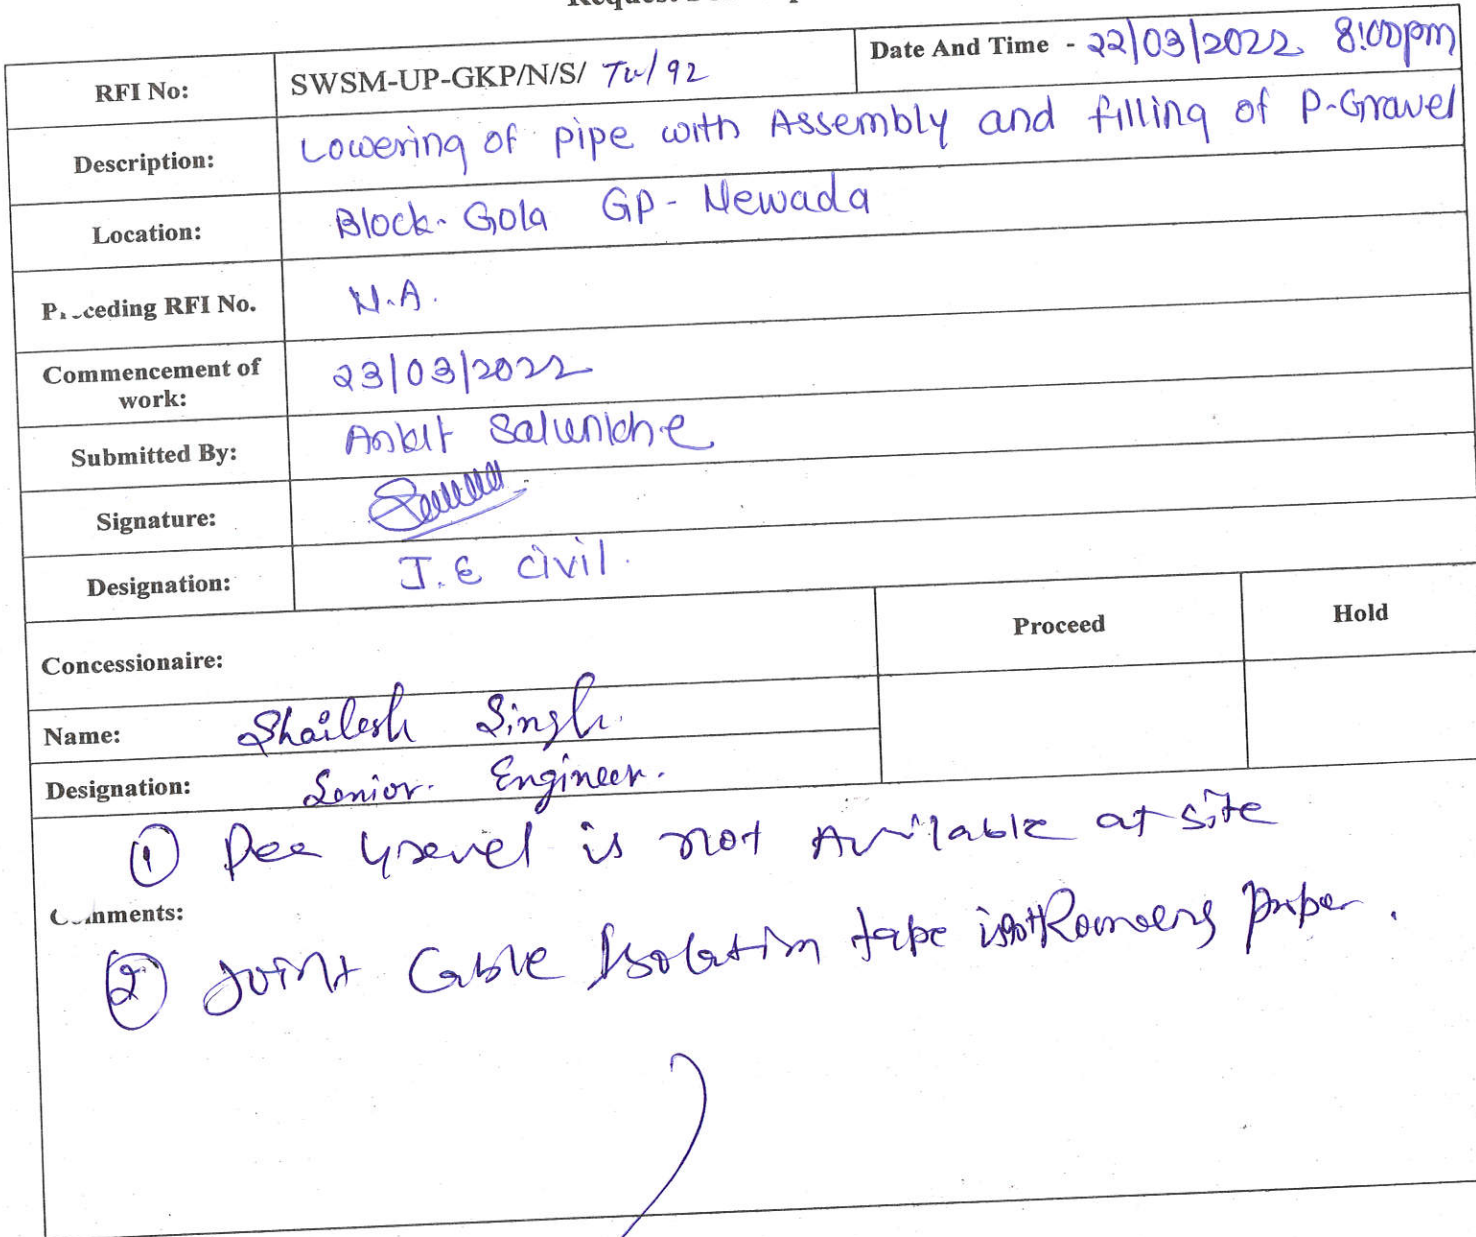 RFI No: SWSM-UP-GKP/N/S/ TW/92 Date And Time - 22/03/2022 8:00pm
Description: Lowering of pipe with Assembly and filling of P-Gravel
Location: Block-Gola GP-Newada
Preceding RFI No. N.A.
Commencement of
work: 23/03/2022
Submitted By: Ankit Salunkhe
Signature:
Designation: J.E civil.
Concessionaire: Proceed Hold
Name: Shailesh Singh.
Designation: Senior. Engineer.
① Pea Gravel is not Available at site
Comments:
② Joint Cable Isolation tape is not proper.